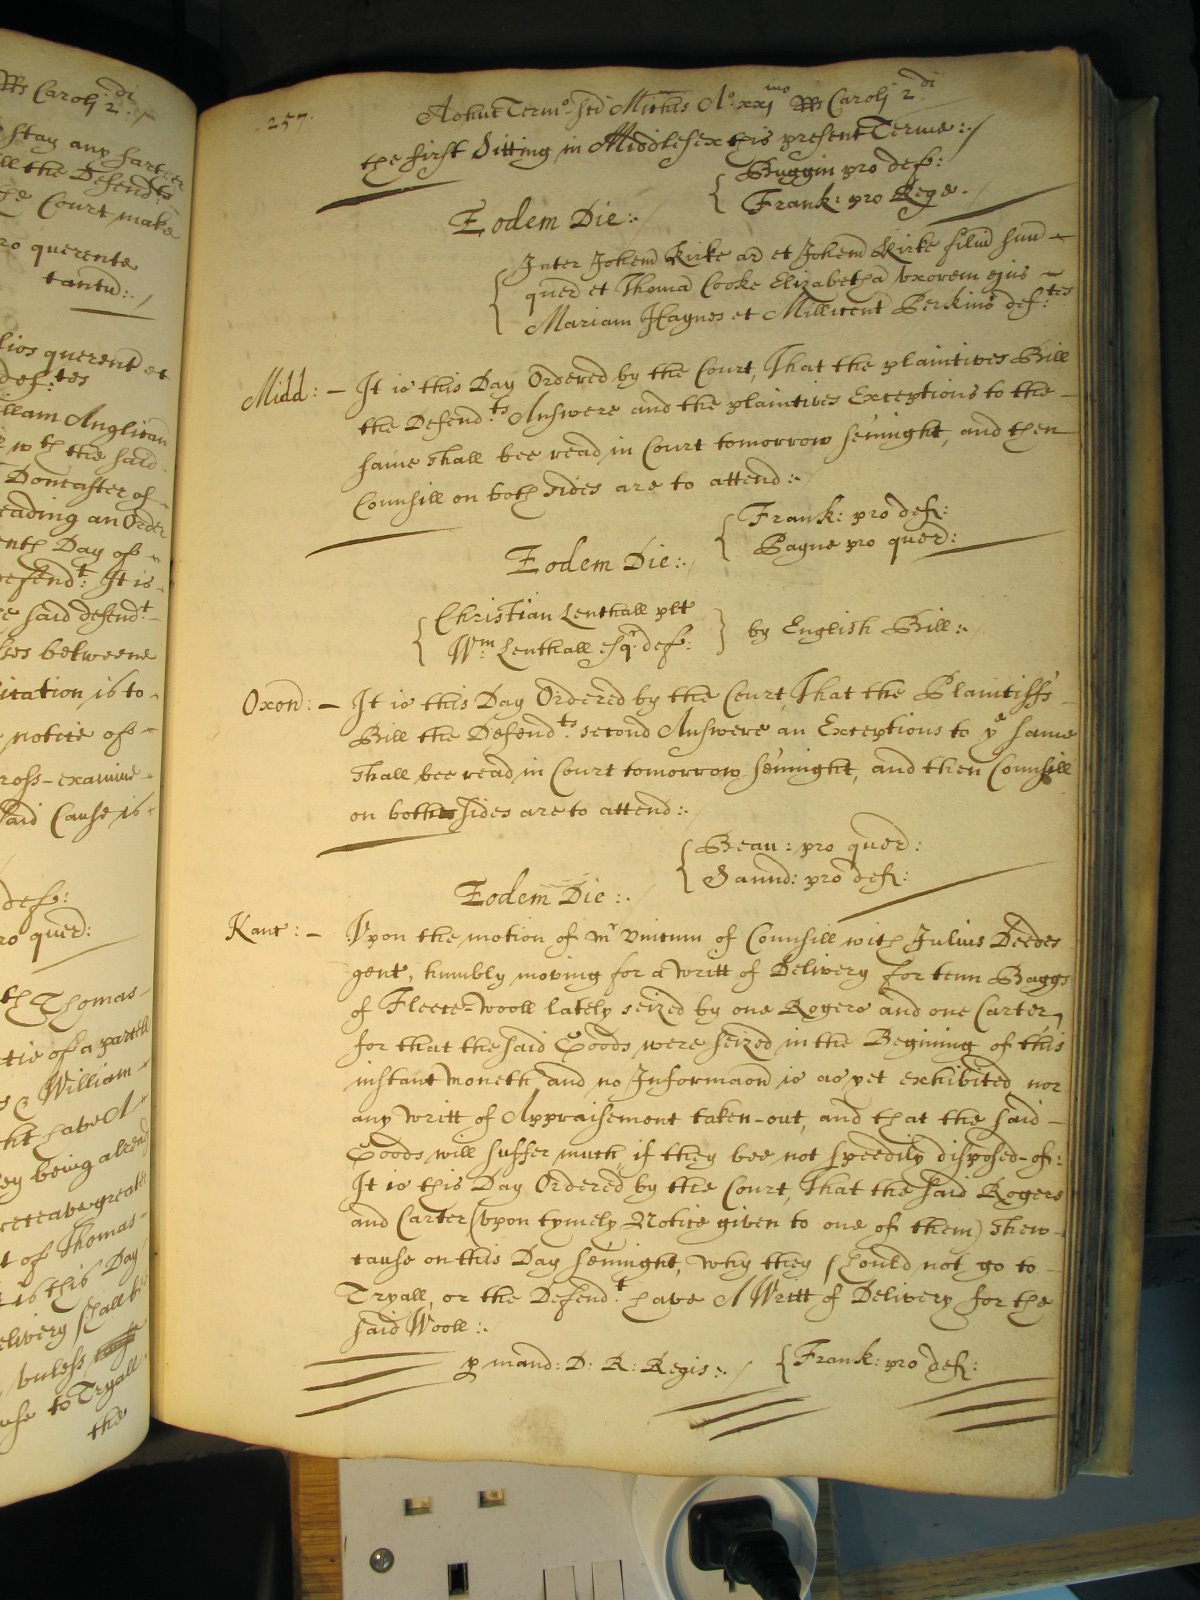 Rs Caroli 2.di
stay any farther
the Defend.ts
the Court make
pro querente
tantu:
querent et
def:tes
illam Anglican
wth the said
Doncaster of
reading an Order
Day of
Defend.t It is
said defend.t
betweene
is to
notice of
Cross-examine
said Cause is
def:
pro quer:
Thomas
of a
& William
have A
being
receave greate
of Thomas
is this Day
Delivery shall
unless
to Tryall
the
257.
Adhuc Term.o Sci Mich̃is A.o xxj.mo Rs Caroli 2.di
the first Sitting in Middlesex this present Terme:
Buggin pro def:
Frank: pro Rege.
Eodem Die:
Inter Johem Kirke ar et Johem Kirke filiu suu
quer et Thoma Cooke Elizabetha uxorem ejus
Mariam Hagnes et Millicent Perkins def:tes
Midd: It is this Day Ordered by the Court, That the plaintives Bill
the Defend.ts Answere and the plaintives Exceptions to the
same shall bee read in Court tomorrow sennight, and then
Counsill on both sides are to attend:
Frank: pro def:
Pagne pro quer:
Eodem Die:
Christian Lenthall plt
Wm. Lenthall esq.r def:
by English Bill:
Oxon: It is this Day Ordered by the Court, That the Plaintiffs
Bill the Defend.ts second Answere an Exceptions to ye same
shall bee read in Court tomorrow sennight, and then Counsill
on both sides are to attend:
Bean: pro quer:
Saund: pro def:
Eodem Die:
Kant: Upon the motion of mr of Counsill with Julius Deedes
gent, humbly moving for a Writt of Delivery for tenn Baggs
of Fleece-Wooll lately seized by one Rogers and one Carter,
for that the said Goods were seized in the Begining of this
instant moneth, and no Informacon is as yet exhibited, nor
any Writt of Appraisement taken-out, and that the said
Goods will suffer much, if they bee not speedily disposed-of:
It is this Day Ordered by the Court, That the said Rogers
and Carter (upon tymely Notice given to one of them) shew
cause on this Day sennight, why they should not go to
Tryall, or the Defend.t have A Writt of Delivery for the
said Wooll:
p mand: D: R: Regis:
Frank: pro def: